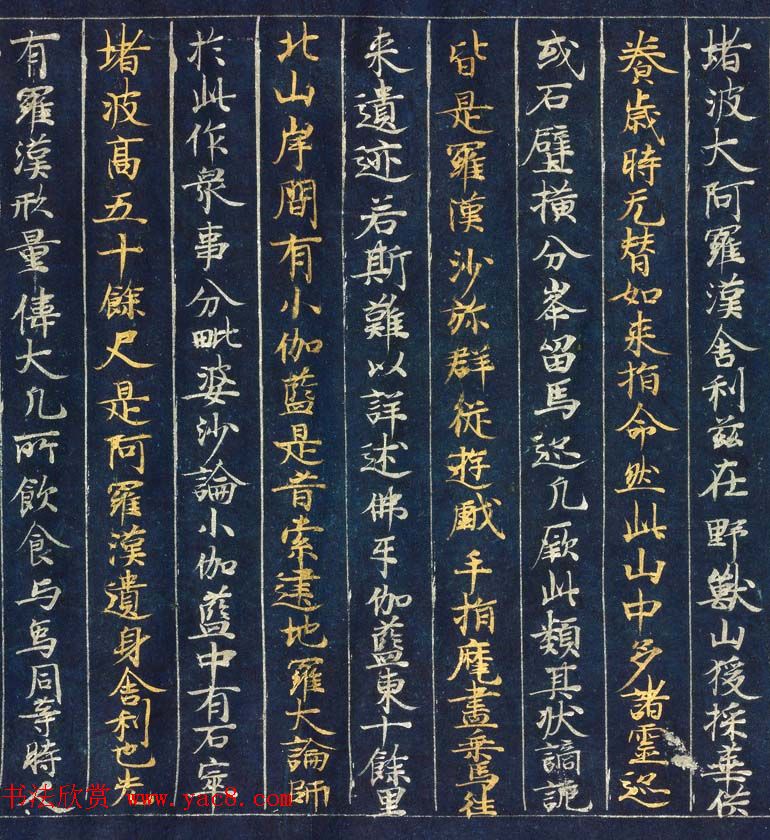 堵波大阿羅漢舍利茲在野獸山猨採華供
養歲時无替如来指命然此山中多諸靈迹
或石壁橫分峯留馬迹凡厥此類其状譎詭
皆是羅漢沙弥群従遊戲手指麾畫乘馬往
来遺迹若斯難以詳述佛牙伽藍東十餘里
北山岸間有小伽藍是昔索建地羅大論師
於此作衆事分毗婆沙論小伽藍中有石窣
堵波高五十餘尺是阿羅漢遺身舍利也先
有羅漢形量偉大凡所飲食与烏同等時
书法欣赏 www.yac8.com